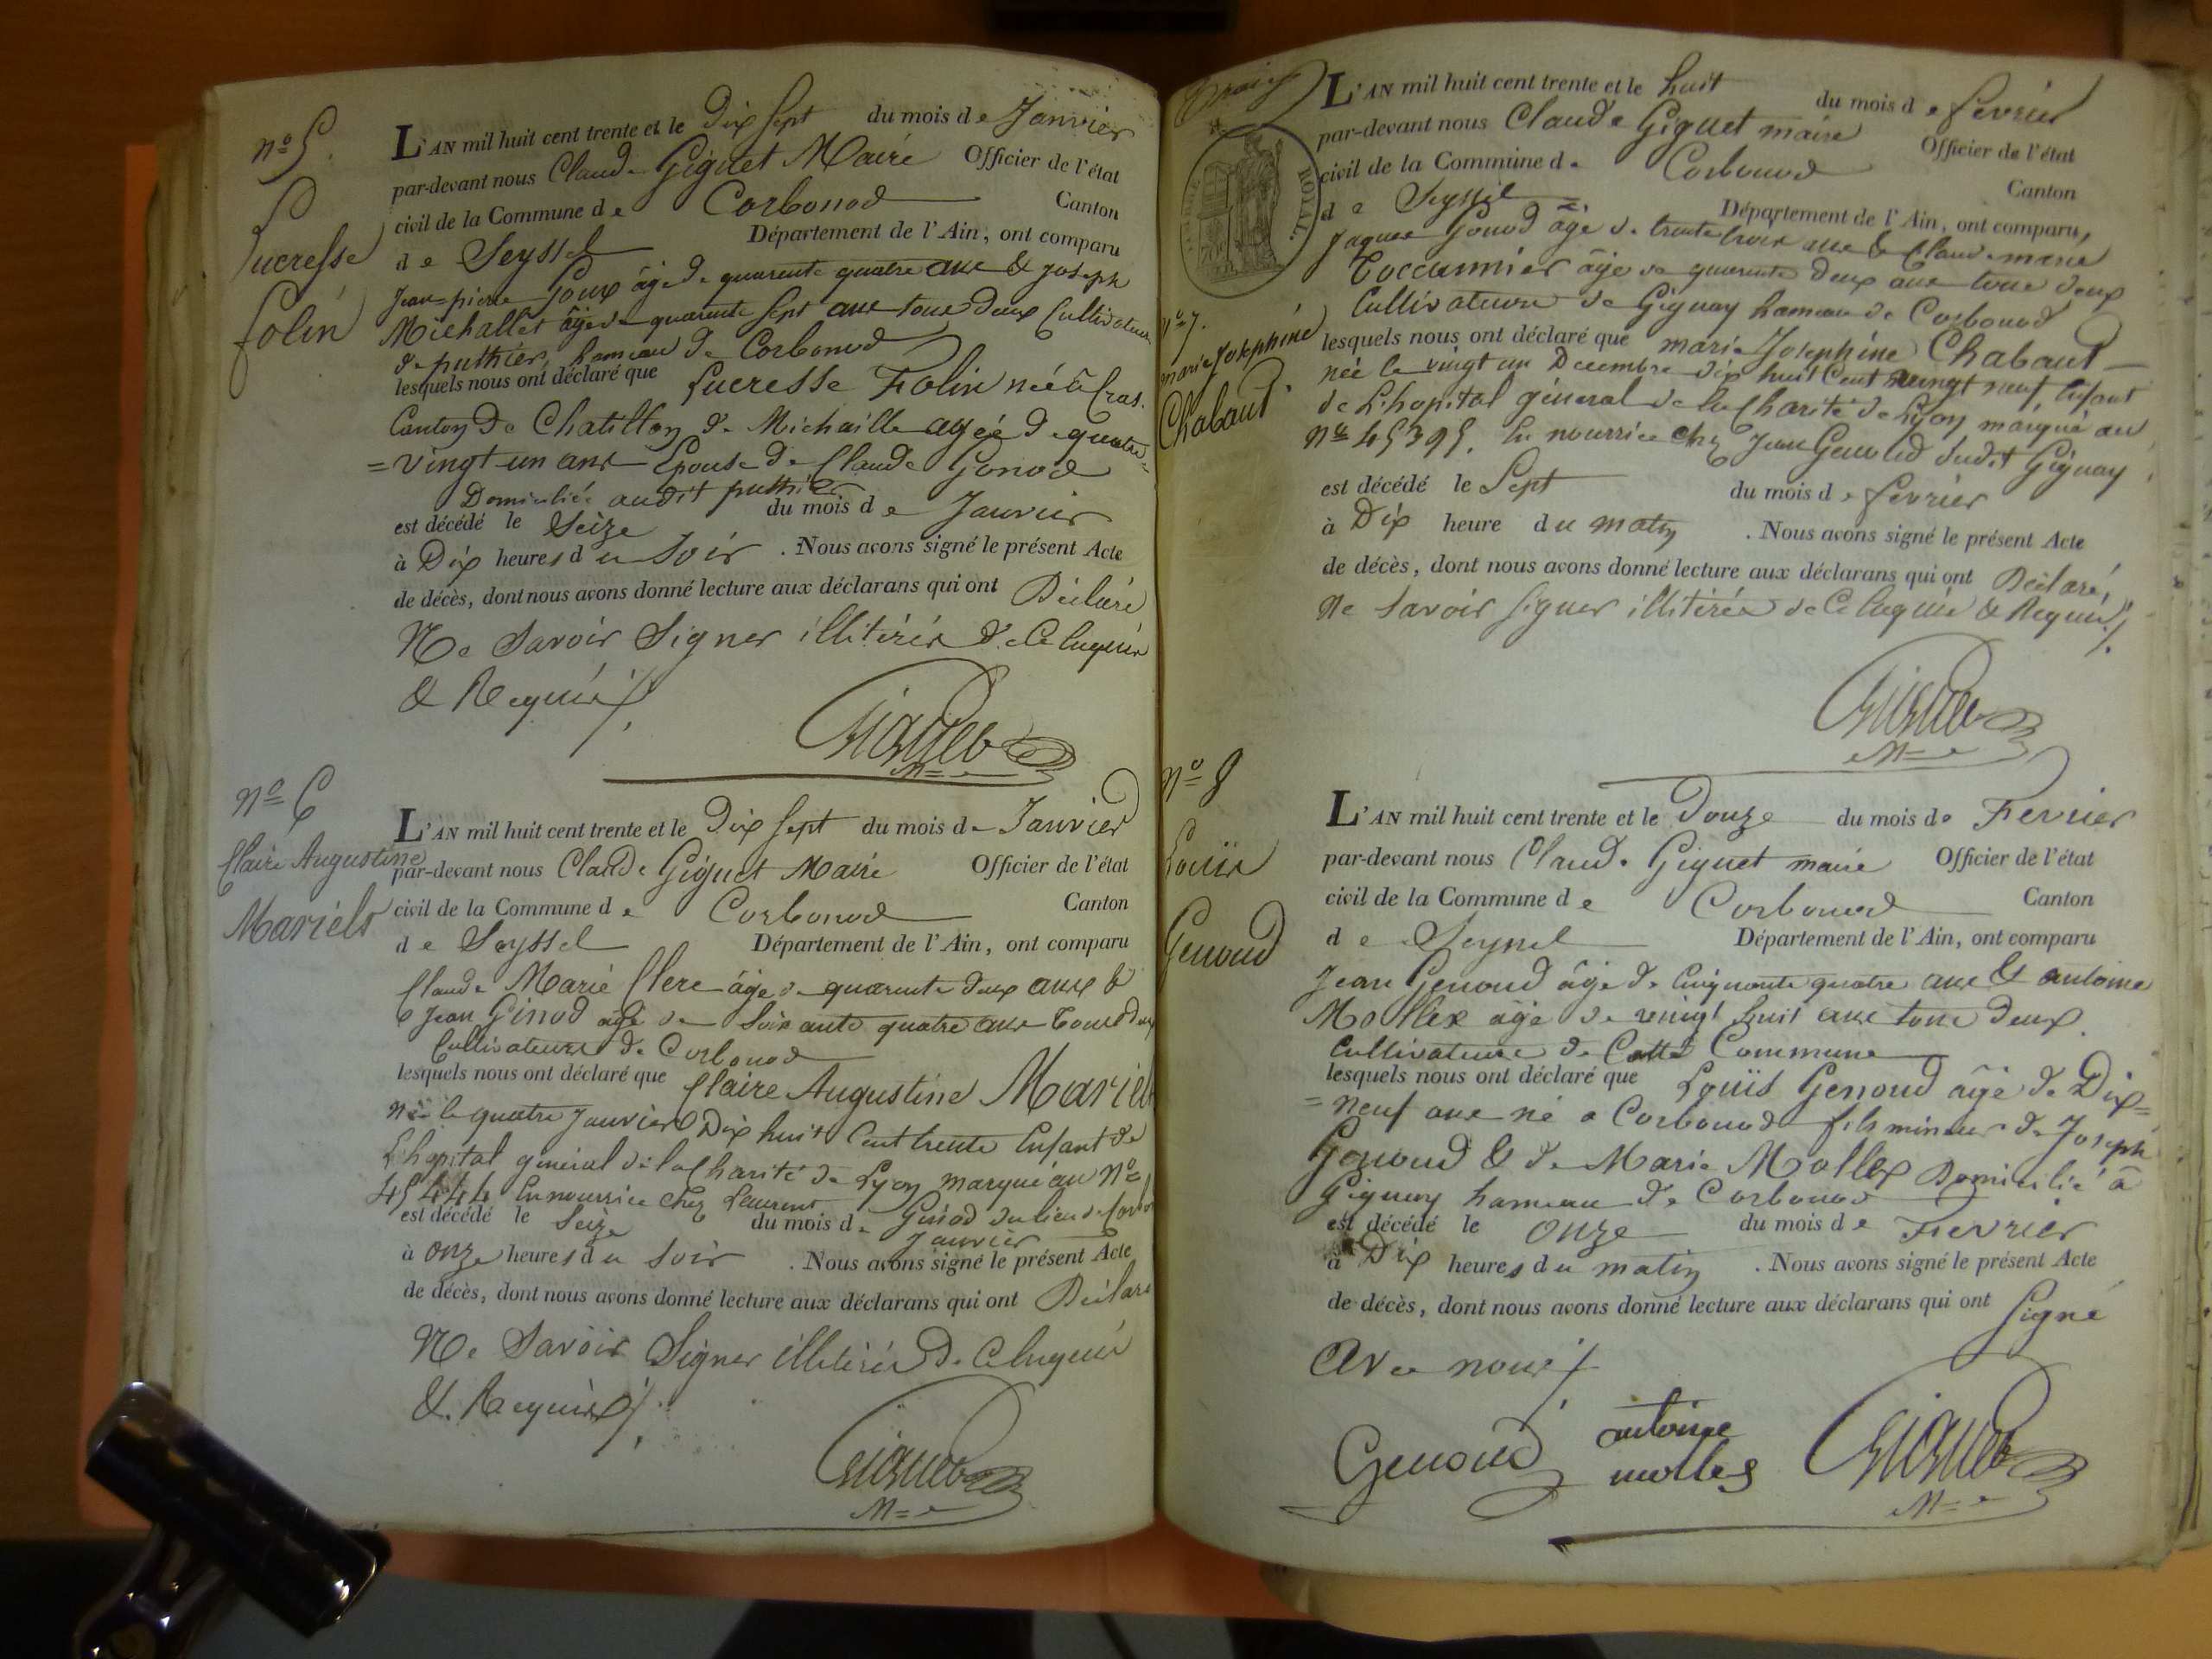 nº 5.
Lucresse
Folin
L'AN mil huit cent trente et le Dix Sept du mois de Janvier
par-devant nous Claude Giguet Maire Officier de l'état
civil de la Commune de Corbonod Canton
de Seyssel Département de l'Ain, ont comparu
Jean=pierre âgé de quarente quatre ans & Joseph
Michallet âgé de quarente Sept ans tous deux Cultivateurs
de puthier, hameau de Corbonod
lesquels nous ont déclaré que Lucresse Folin née à Cras.
Canton de Chatillon de Michaille agée de quatre=
=vingt-un ans Epouse de Claude Gonod
Domiciliée audit puthier
est décédé le Seize du mois de Janvier
à Dix heures du Soir . Nous avons signé le présent Acte
de décès, dont nous avons donné lecture aux déclarans qui ont Déclaré
Ne Savoir Signer illitérés de ce Enquis
& Requis
Giguet
M=e
nº 6
Claire Augustine
Mariels
L'AN mil huit cent trente et le Dix Sept du mois de Janvier
par-devant nous Claude Giguet Maire Officier de l'état
civil de la Commune de Corbonod Canton
de Seyssel Département de l'Ain, ont comparu
Claude Marie Clerc âgé de quarente deux ans &
Jean Ginod agé de Soixante quatre ans tous deux
Cultivateurs de Corbonod
lesquels nous ont déclaré que Claire Augustine Mariels
née le quatre Janvier Dix huit Cent trente Enfant de
L'hopital général de la Charité de Lyon marqué au Nº
45444 En nourrice chez Laurent
Ginod du lieu de
est décédé le Seize du mois de Janvier
à onze heures du Soir . Nous avons signé le présent Acte
de décès, dont nous avons donné lecture aux déclarans qui ont Déclaré
Ne Savoir Signer illitérés de ce Enquis
& Requis
Giguet
M=e
ROYAL.
nº 7.
marie Josephine
Chabaud.
L'AN mil huit cent trente et le huit du mois de fevrier
par-devant nous Claude Giguet maire Officier de l'état
civil de la Commune de Corbonod Canton
de Seyssel Département de l'Ain, ont comparu,
Jaques Gonod âgé de trente trois ans & Claude marie
âgé de quarente deux ans tous deux
Cultivateurs de Gignay hameau de Corbonod
lesquels nous ont déclaré que marie Josephine Chabaud
née le vingt un Decembre dix huit Cent vingt neuf Enfant
de L'hopital géneral de la Charité de Lyon marqué au
nº 45395. En nourrice chez Jean Genoud dudit Gignay
est décédé le Sept du mois de fevrier
à Dix heure du matin . Nous avons signé le présent Acte
de décès, dont nous avons donné lecture aux déclarans qui ont Déclaré,
Ne Savoir Signer illitérés de ce Enquis & Requis
Giguet
M=e
nº 8
Louis
Genoud
L'AN mil huit cent trente et le Douze du mois de Fevrier
par-devant nous Claude Giguet maire Officier de l'état
civil de la Commune de Corbonod Canton
de Seyssel Département de l'Ain, ont comparu
Jean Genoud âgé de Cinquante quatre ans & antoine
Mollex âgé de vingt huit ans tous deux
Cultivateurs de Cette Commune
lesquels nous ont déclaré que Louis Genoud âgé de Dix=
=neuf ans né a Corbonod fils mineur de Joseph
Genoud & de Marie Mollex Domicilié à
Gignay hameau de Corbonod
est décédé le onze du mois de Fevrier
à Dix heures du matin . Nous avons signé le présent Acte
de décès, dont nous avons donné lecture aux déclarans qui ont Signé
Avec nous
Genoud antoine Giguet
molles
M=e